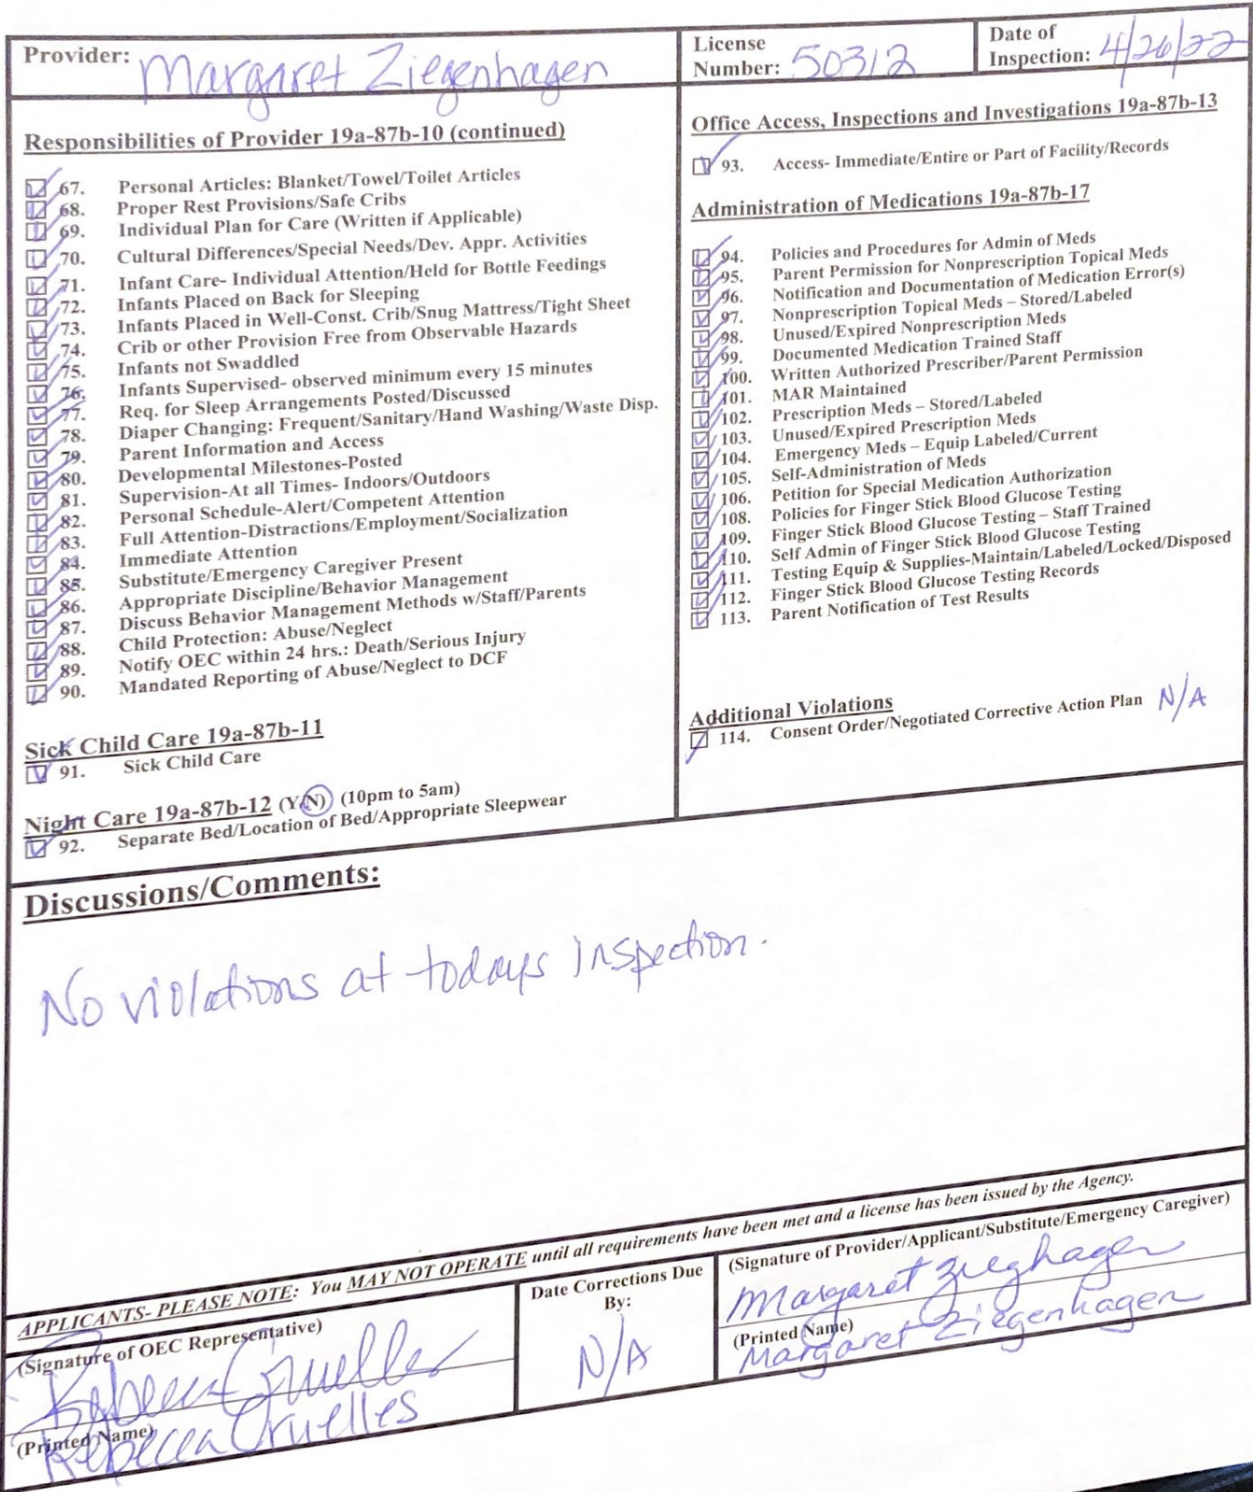 Provider: Margaret Ziegenhagen
License Number: 50312
Date of Inspection: 4/26/22
Responsibilities of Provider 19a-87b-10 (continued)
67. Personal Articles: Blanket/Towel/Toilet Articles
68. Proper Rest Provisions/Safe Cribs
69. Individual Plan for Care (Written if Applicable)
70. Cultural Differences/Special Needs/Dev. Appr. Activities
71. Infant Care- Individual Attention/Held for Bottle Feedings
72. Infants Placed on Back for Sleeping
73. Infants Placed in Well-Const. Crib/Snug Mattress/Tight Sheet
74. Crib or other Provision Free from Observable Hazards
75. Infants not Swaddled
76. Infants Supervised- observed minimum every 15 minutes
77. Req. for Sleep Arrangements Posted/Discussed
78. Diaper Changing: Frequent/Sanitary/Hand Washing/Waste Disp.
79. Parent Information and Access
80. Developmental Milestones-Posted
81. Supervision-At all Times- Indoors/Outdoors
82. Personal Schedule-Alert/Competent Attention
83. Full Attention-Distractions/Employment/Socialization
84. Immediate Attention
85. Substitute/Emergency Caregiver Present
86. Appropriate Discipline/Behavior Management
87. Discuss Behavior Management Methods w/Staff/Parents
88. Child Protection: Abuse/Neglect
89. Notify OEC within 24 hrs.: Death/Serious Injury
90. Mandated Reporting of Abuse/Neglect to DCF
Sick Child Care 19a-87b-11
91. Sick Child Care
Night Care 19a-87b-12 (Y/N) (10pm to 5am)
92. Separate Bed/Location of Bed/Appropriate Sleepwear
Office Access, Inspections and Investigations 19a-87b-13
93. Access- Immediate/Entire or Part of Facility/Records
Administration of Medications 19a-87b-17
94. Policies and Procedures for Admin of Meds
95. Parent Permission for Nonprescription Topical Meds
96. Notification and Documentation of Medication Error(s)
97. Nonprescription Topical Meds – Stored/Labeled
98. Unused/Expired Nonprescription Meds
99. Documented Medication Trained Staff
100. Written Authorized Prescriber/Parent Permission
101. MAR Maintained
102. Prescription Meds – Stored/Labeled
103. Unused/Expired Prescription Meds
104. Emergency Meds – Equip Labeled/Current
105. Self-Administration of Meds
106. Petition for Special Medication Authorization
108. Policies for Finger Stick Blood Glucose Testing
109. Finger Stick Blood Glucose Testing – Staff Trained
110. Self Admin of Finger Stick Blood Glucose Testing
111. Testing Equip & Supplies-Maintain/Labeled/Locked/Disposed
112. Finger Stick Blood Glucose Testing Records
113. Parent Notification of Test Results
Additional Violations
114. Consent Order/Negotiated Corrective Action Plan N/A
Discussions/Comments:
No violations at todays inspection.
APPLICANTS- PLEASE NOTE: You MAY NOT OPERATE until all requirements have been met and a license has been issued by the Agency.
(Signature of OEC Representative)
Rebecca Cruelles
(Printed Name)
Rebecca Cruelles
Date Corrections Due
By:
N/A
(Signature of Provider/Applicant/Substitute/Emergency Caregiver)
Margaret Zieghagen
(Printed Name)
Margaret Ziegenhagen